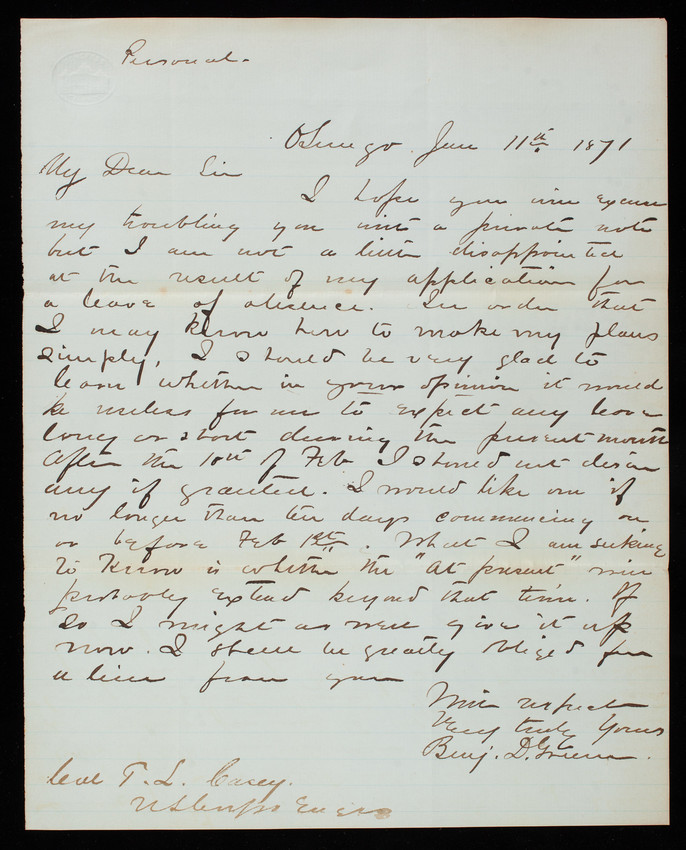 Personal.
Oswego. Jan 11th 1871
My Dear Sir
I hope you will excuse
my troubling you with a private note
but I am not a little disappointed
at the result of my application for
a leave of absence. In order that
I may know how to make my plans
simply, I should be very glad to
learn whether in your opinion it would
be useless for me to expect any leave
long or short during the present month
After the 10th of Feb I should not desire
any if granted. I would like one if
no longer than ten days commencing on
or before Feb 1st. What I am seeking
to know is whether the "At present" will
probably extend beyond that time. If
so I might as well give it up
now. I shall be greatly obliged for
a line from you
With respect
Very truly Yours
Benj. D. Greene.
Col T. L. Casey.
US Corps Engrs